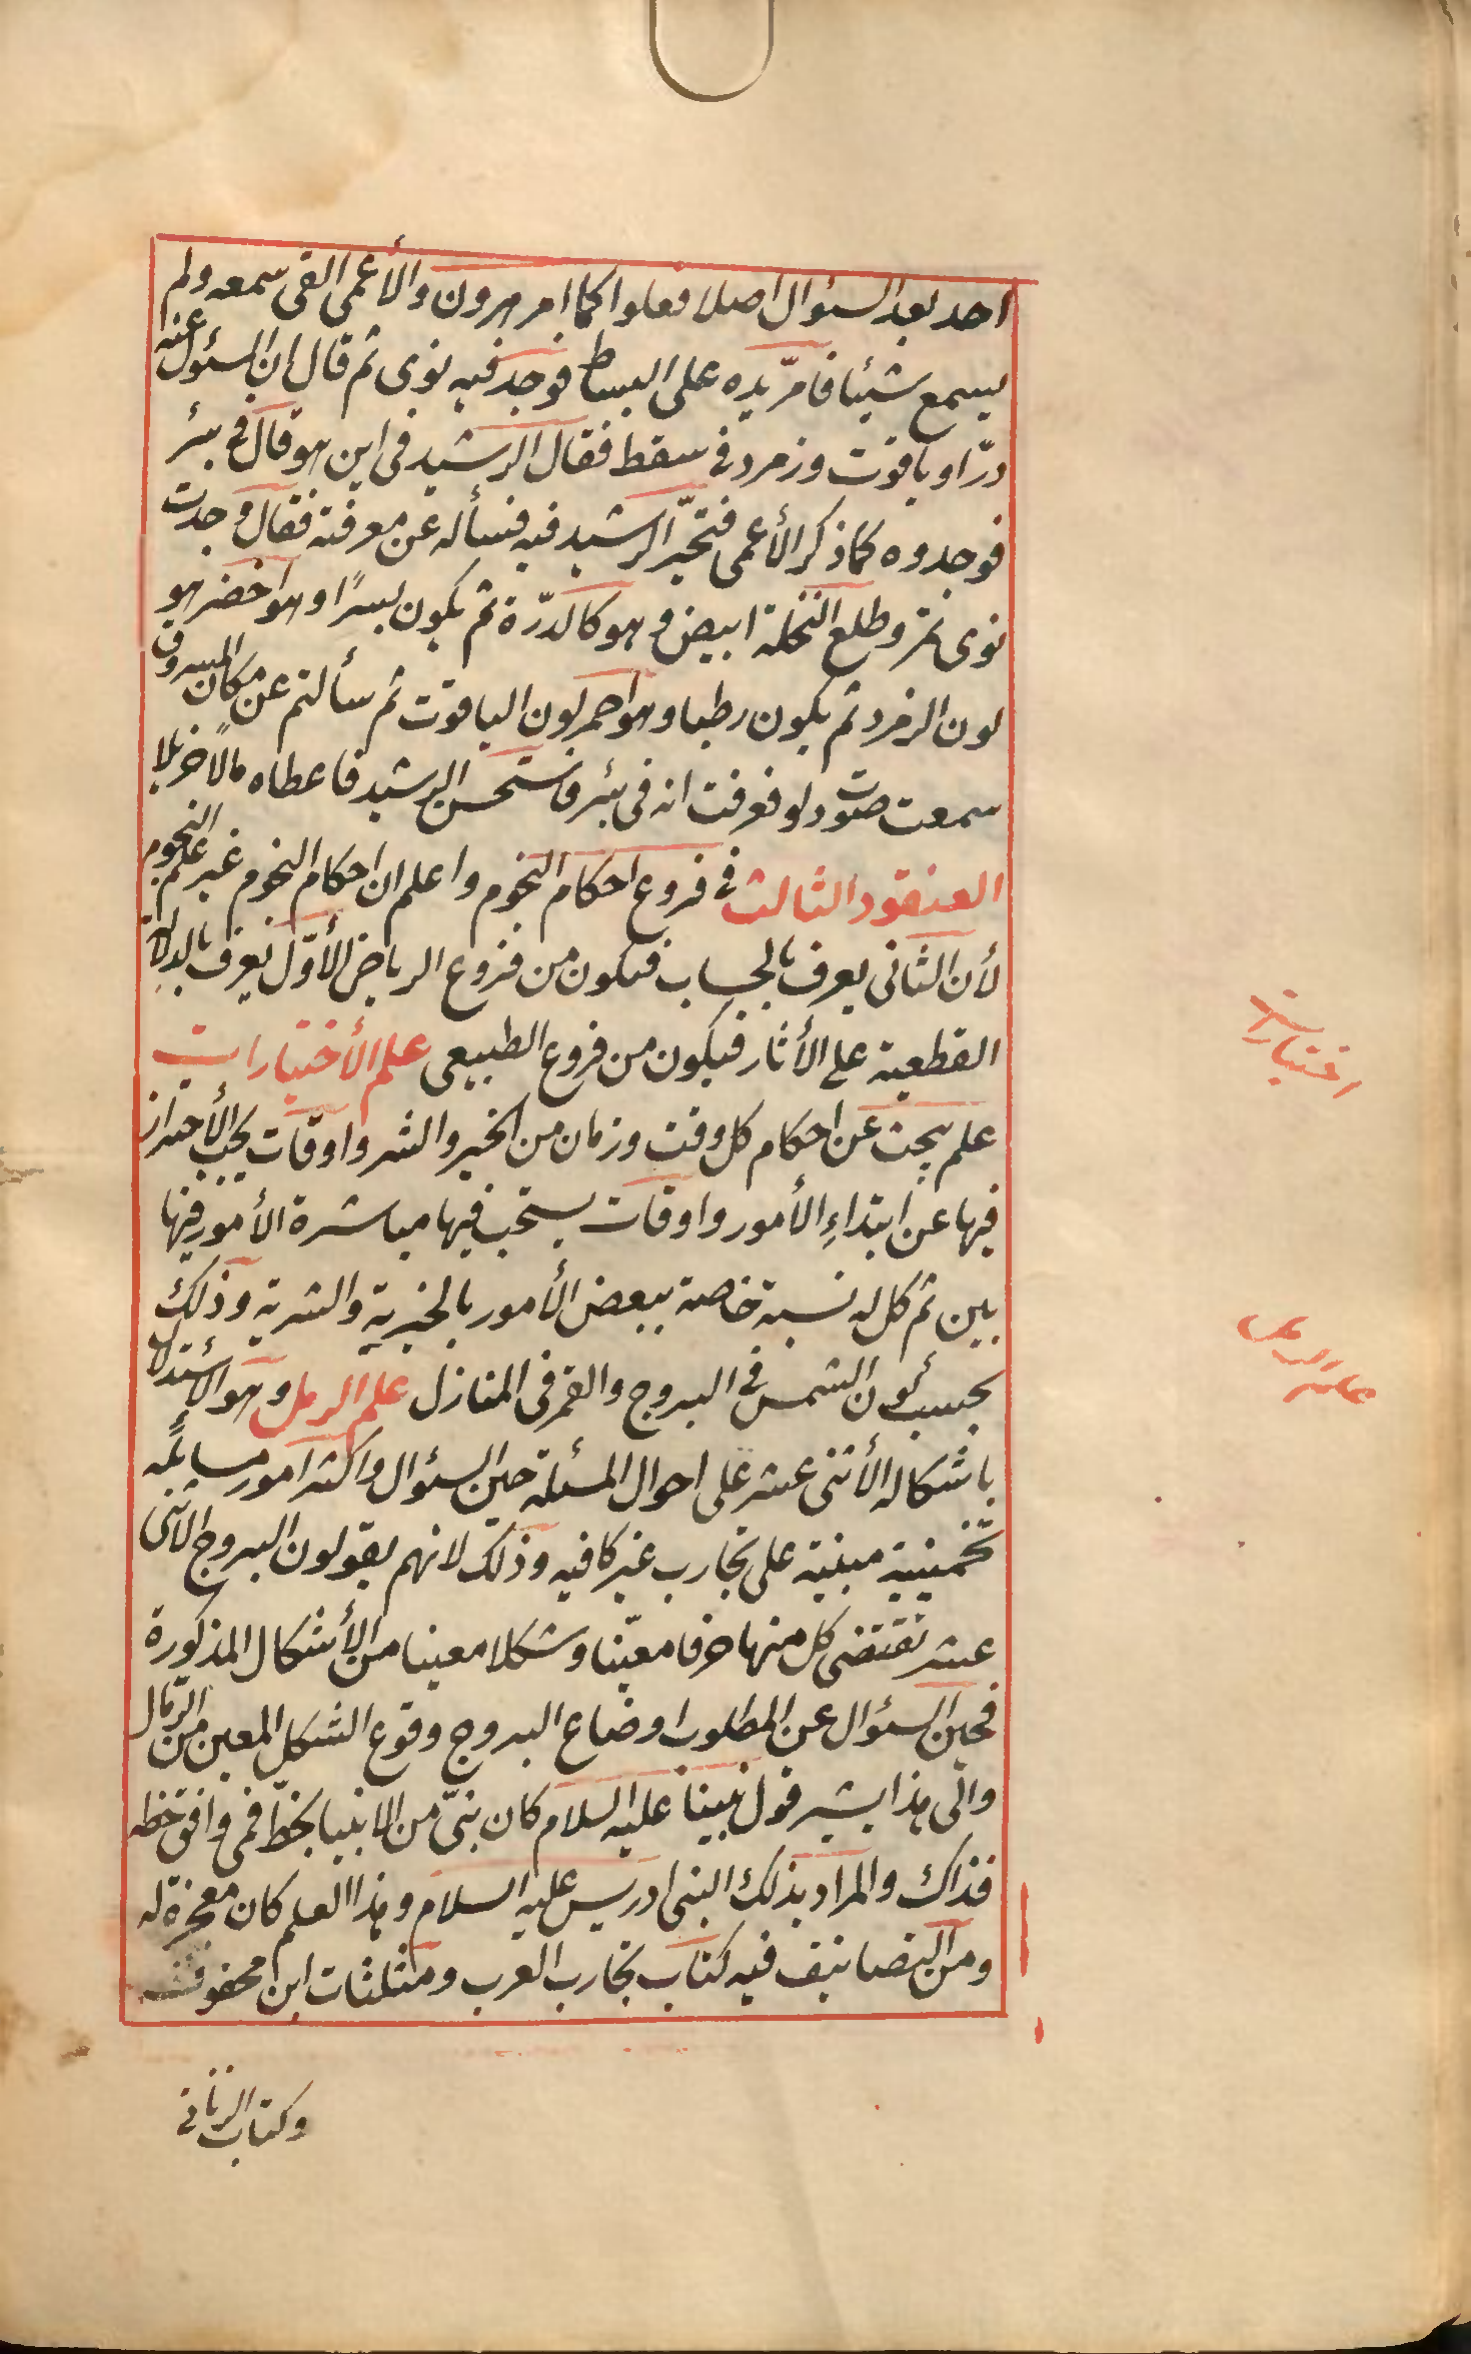 احد بعد السئوال اصلا فعلوا كما امر هرون والأعمى القى سمعه ولم
يسمع شيئا فامرّ يده على البساط فوجد فيه نوى ثم قال ان المسئول عنه
درّ او ياقوت وزمرد فى سقط فقال الرشيد فى اين هو قال فى بئر
فوجدوه كما ذكر الأعمى فتحيّر الرشيد فيه فسأله عن معرفته فقال وجدت
نوى تمر وطلع النخلة ابيض وهو كالدرّة ثم يكون بسرًا وهو اخضر هو
لون الزمرد ثم يكون رطبا وهو احمر لون الياقوت ثم سألتم عن مكان المسروق
سمعت صوت دلو فعرفت انه فى بئر فاستحسن الرشيد فاعطاه مالًا جزيلا
العنقود الثالث فى فروع احكام النجوم واعلم ان احكام النجوم غير علم النجوم
لأن الثانى يعرف بالحساب فيكون من فروع الرياض الأوّل يعرف بالدلالة
القطعية على الأثار فيكون من فروع الطبيعى علم الأختيارات
علم يبحث عن احكام كل وقت وزمان من الخير والشر واوقات يجب الأحتراز
فيها عن ابتداءِ الأمور واوقات يستحب فيها مباشرة الأمور فيها
بين ثم كل له نسبة خاصة ببعض الأمور بالخيرية والشرية وذلك
بحسب كون الشمس فى البروج والقمر فى المنازل علم الرمل وهو الاستدلال
باشكاله الأثنى عشر على احوال المسئلة حين السئوال واكثر امور مسايله
تخمينية مبنية على تجارب غير كافيه وذلك لانهم يقولون البروج الاثنى
عشر تقتضى كل منها حرفا معيّنا وشكلا معينا من الأشكال المذكورة
فحين السئوال عن المطلوب اوضاع البروج وقوع الشكل المعين من الرمال
والى هذا يشير قول نبينا عليه السلام كان نبىّ من الانبيا يخطّ فمن وافق خطه
فذاك والمراد بذلك النبى ادريس عليه السلام وهذا العلم كان معجزة له
ومن التصانيف فيه كتاب تجارب العرب ومثلثات ابن محفوف
وكتاب الزناتى
اختيارات
علم الرمل